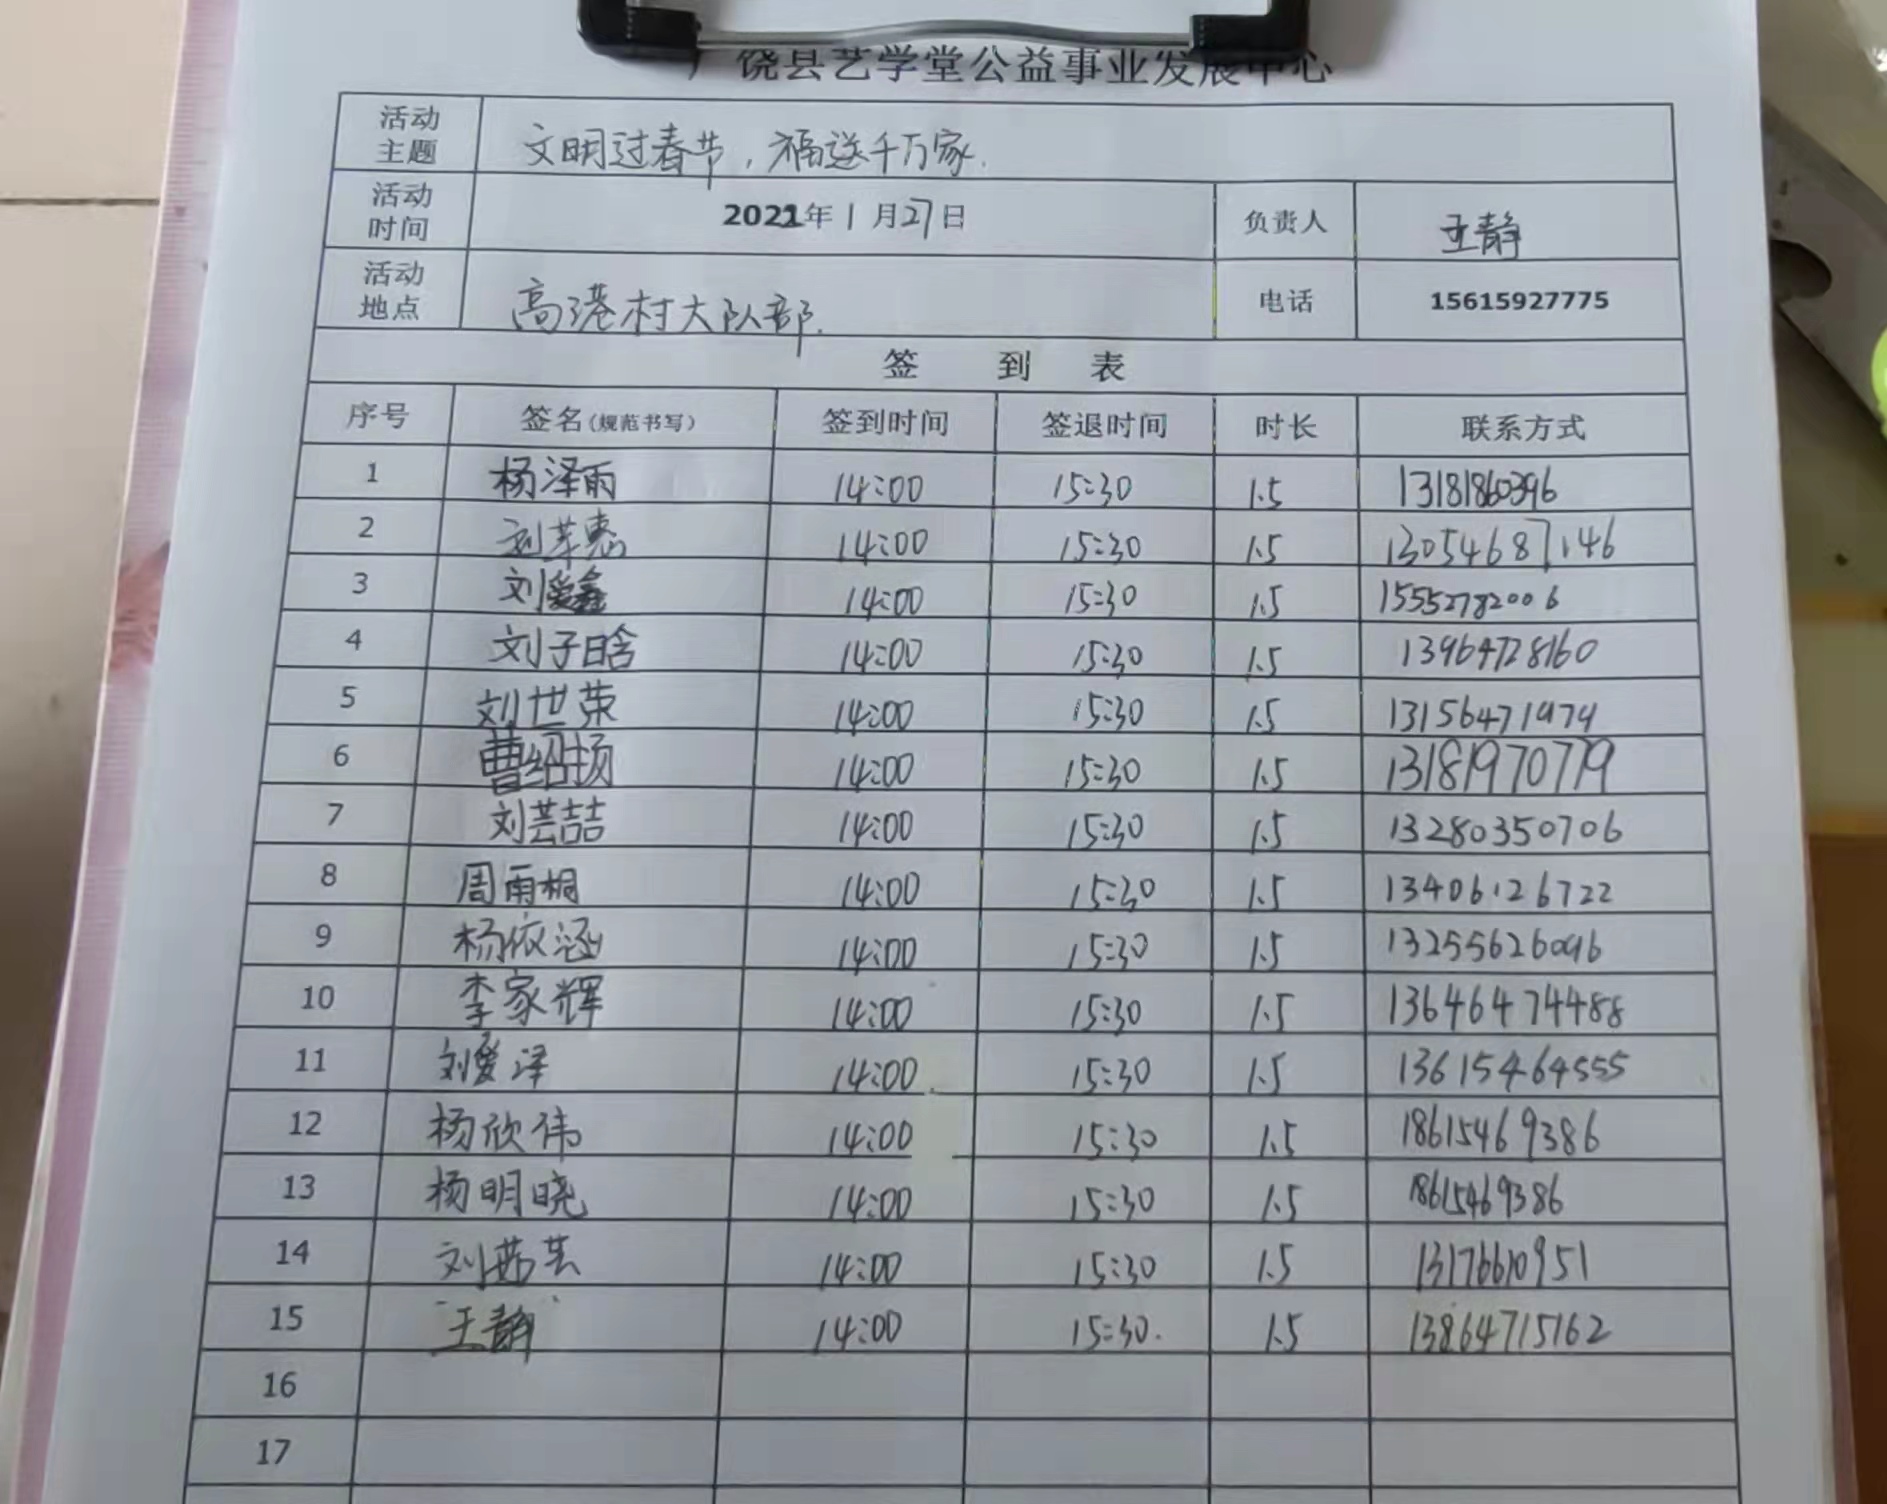 广饶县艺学堂公益事业发展中心
活动主题 文明过春节，福送千万家.
活动时间 2022年1月27日 负责人 王静
活动地点 高港村大队部. 电话 15615927775
签 到 表
序号 签名(规范书写) 签到时间 签退时间 时长 联系方式
1 杨泽雨 14:00 15:30 1.5 13181860396
2 刘芊惠 14:00 15:30 1.5 13054687146
3 刘爱鑫 14:00 15:30 1.5 15552782006
4 刘子晗 14:00 15:30 1.5 13964728160
5 刘世荣 14:00 15:30 1.5 13156471974
6 曹绍扬 14:00 15:30 1.5 13181970779
7 刘芸喆 14:00 15:30 1.5 13280350706
8 周雨桐 14:00 15:30 1.5 13406126722
9 杨依涵 14:00 15:30 1.5 13255626096
10 李家辉 14:00 15:30 1.5 13646474488
11 刘爱泽 14:00 15:30 1.5 13615464555
12 杨欣伟 14:00 15:30 1.5 18615469386
13 杨明晓 14:00 15:30 1.5 18615469386
14 刘茜芸 14:00 15:30 1.5 13176610951
15 王静 14:00 15:30. 1.5 13864715162
16
17